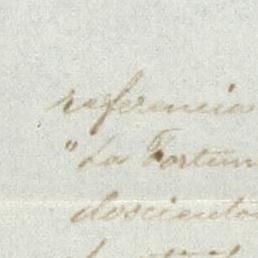 referencia
"La Fortun
doscientos